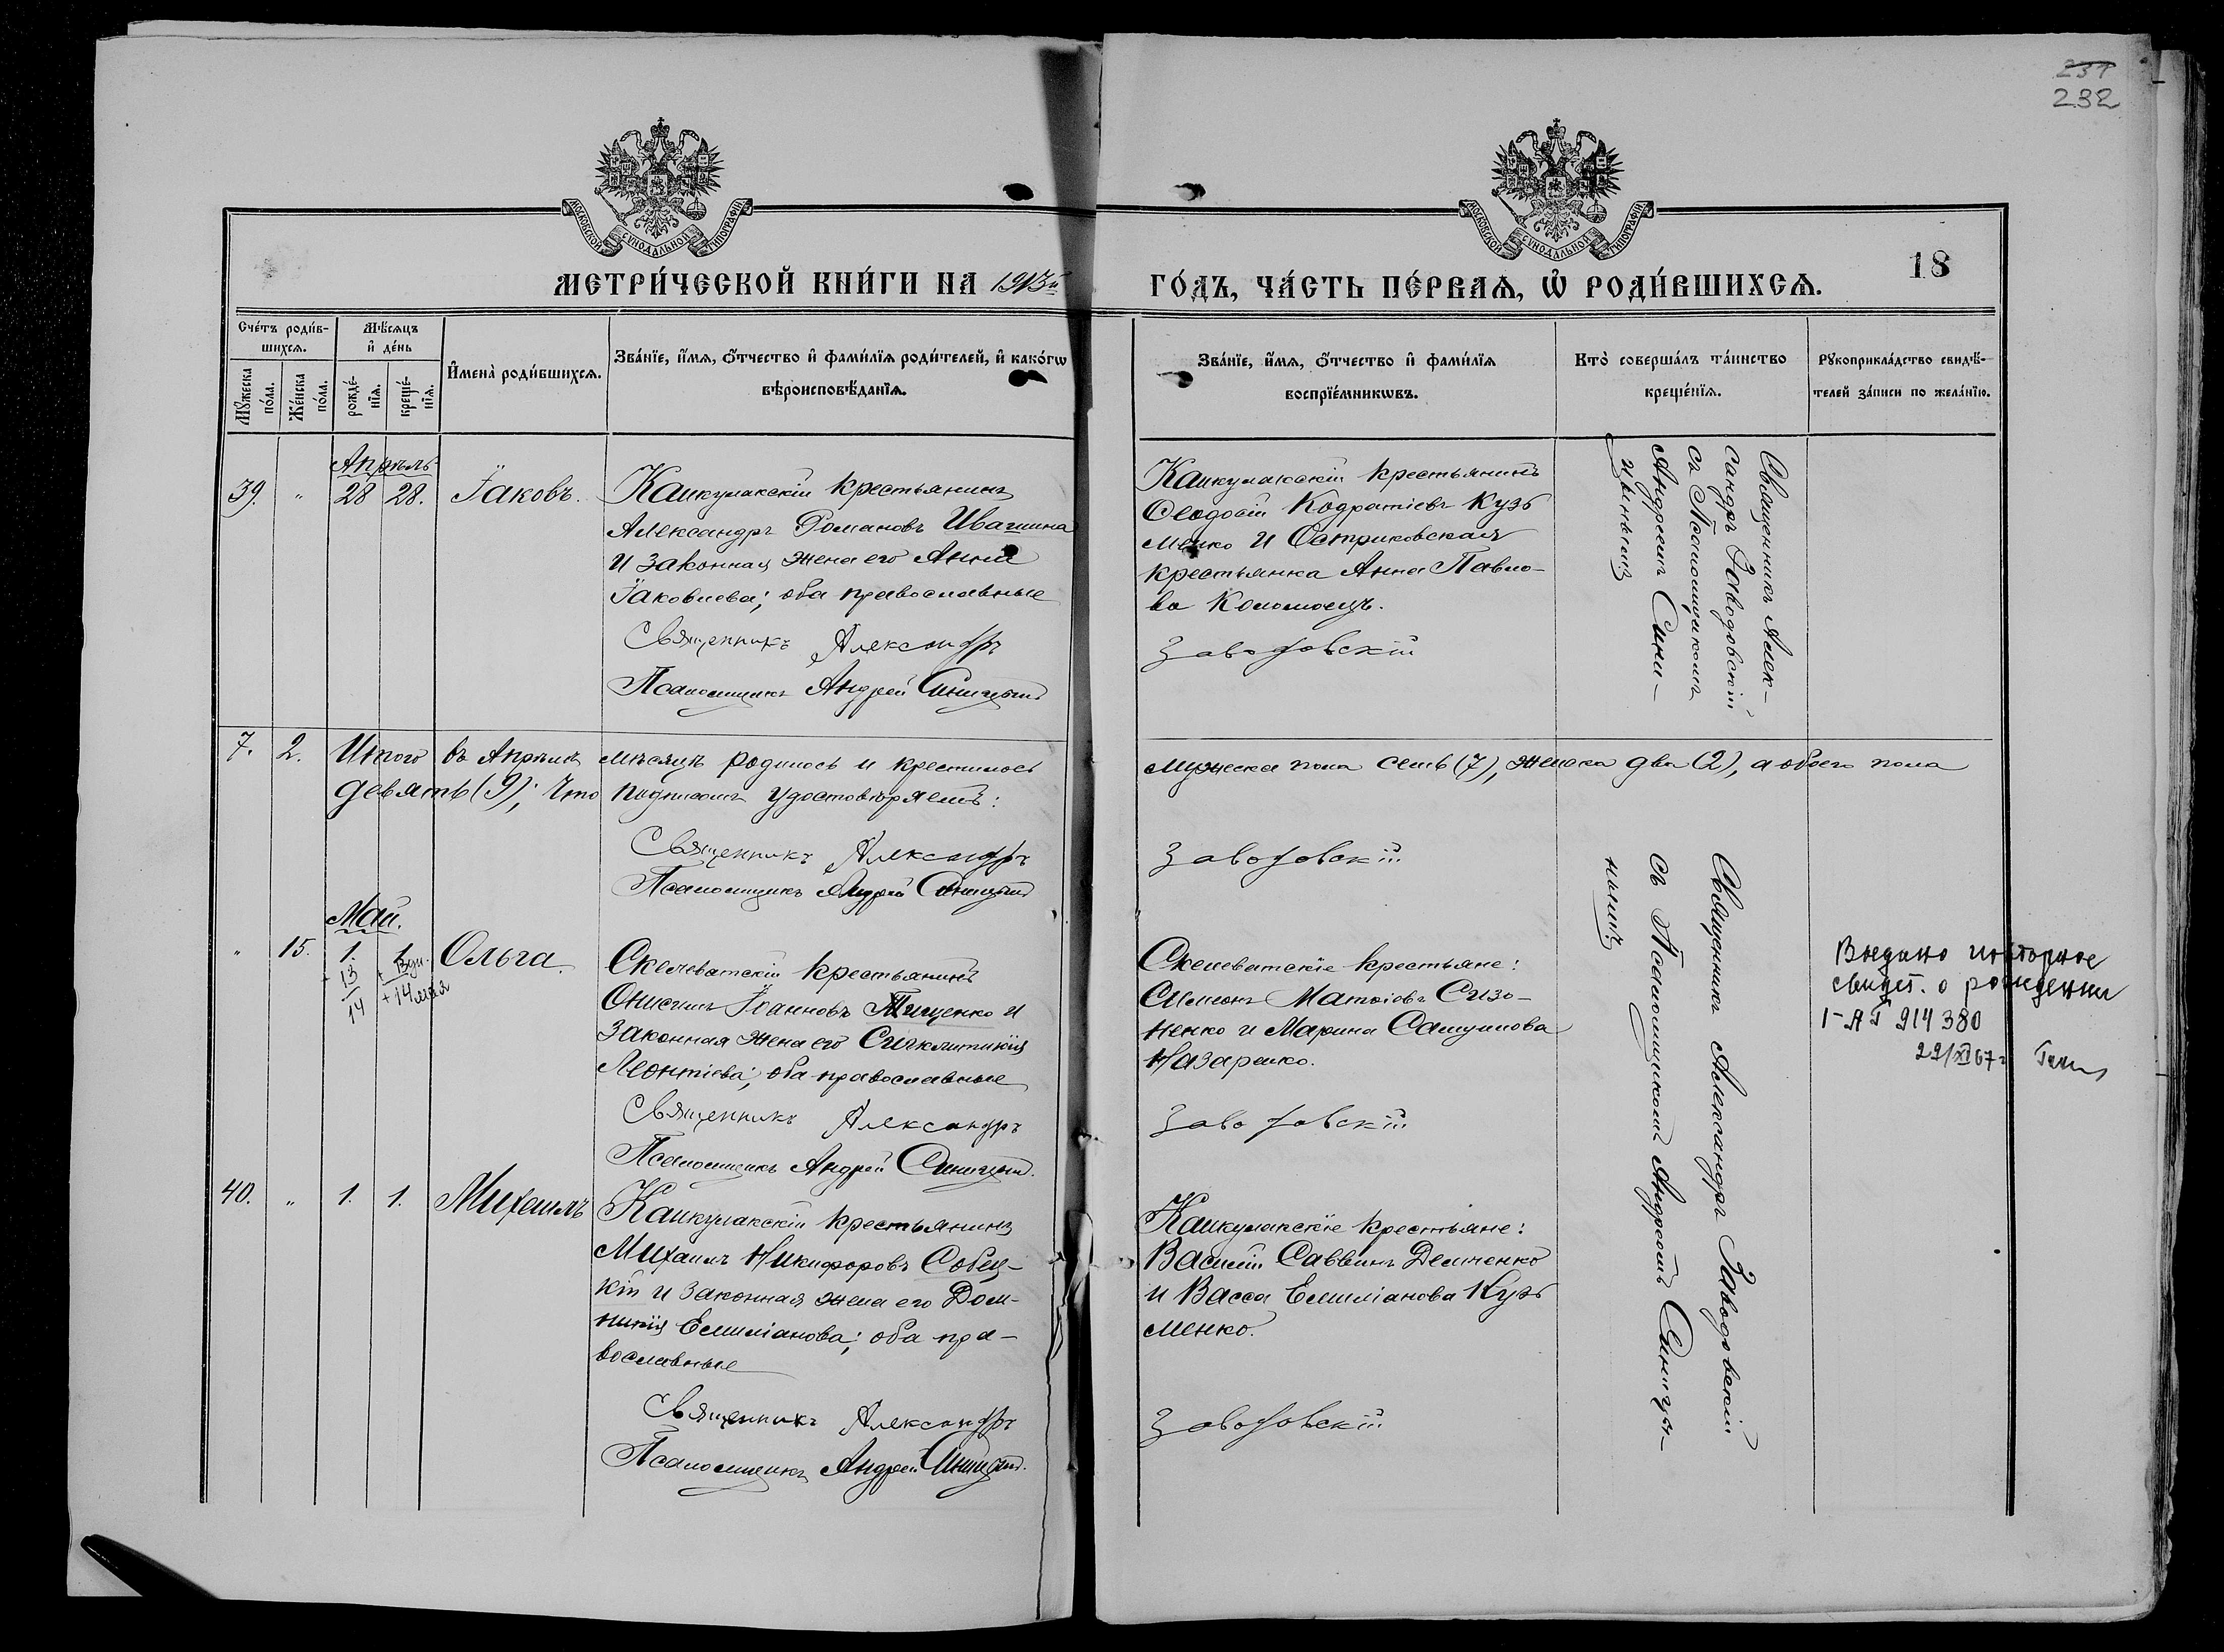 231
232
МОСКОВСКОЙ СѴНОДАЛЬНОЙ ТИПОГРАФІИ
МОСКОВСКОЙ СѴНОДАЛЬНОЙ ТИПОГРАФІИ
МЕТРИ́ЧЕСКОЙ КНИ́ГИ НА 1913й ГО́ДЪ, ЧА́СТЬ ПЕ́РВАѦ, Ѡ҆ РОДИ́ВШИХСѦ.
18
Сче́тъ роди́в-
шихсѧ.
Мѣ́сѧцъ
и҆ де́нь
Мꙋ́жеска
по́ла.
Же́нска
по́ла.
рожде́-
нїѧ.
креще́-
нїѧ.
И҆мена̀ роди́вшихсѧ.
Зва́нїе, и҆́мѧ, ѻ҆́тчество и҆ фами́лїѧ роди́телей, и҆ како́гѡ
вѣроисповѣ́данїѧ.
Зва́нїе, и҆́мѧ, ѻ҆́тчество и҆ фами́лїѧ
воспрїе́мникѡвъ.
Кто̀ соверша́лъ та́инство
креще́нїѧ.
Рꙋкоприкла́дство свидѣ́-
телей за́писи по жела́нїю.
Апрѣль
39. " 28 28. Іаковъ.
Каикулакскій крестьянинъ
Александръ Романовъ Ивагшина
и законная жена его Анна
Іаковлева; оба православные
Священникъ Александръ
Псаломщикъ Андрей Синицынъ
Каикулакскій крестьянинъ
Ѳеодосій Кодратіевъ Кузь
менко и Остриковская
крестьянка Анна Павло-
ва Коломоецъ.
Заводовскій
Священникъ Алек-
сандръ Заводовскій
съ Псаломщикомъ
Андреемъ Сини-
цынымъ
7. 2. Итого въ Апрѣлѣ мѣсяцѣ родилось и крестилось мужеска пола семь (7), женска два (2), а обоего пола
девять (9); что подписомъ удостовѣряемъ:
Священникъ Александръ Заводовскій
Псаломщикъ Андрей Синицынъ
Май.
" 15. 1. 1. Ольга.
+ 13
14
+ 13
+ 14 мая
Скелеватскій крестьянинъ
Онисимъ Іоанновъ Тищенко и
законная жена его Сигклитикія
Леонтіева; оба православные
Священникъ Александръ
Псаломщикъ Андрей Синицынъ.
Скелеватскіе крестьяне:
Симеонъ Матѳіовъ Сизо-
ненко и Марина Самуилова
Назаренко.
Заводовскій
Священникъ Александръ Заводовскій
съ Псаломщикомъ Андреемъ Синицы-
нымъ
Выдано повторное
свидет. о рождении
I-ЯГ 914380
22/XI 67 г
40. " 1. 1. Михаилъ
Каикулакскій крестьянинъ
Михаилъ Никифоровъ Собец-
кій и законная жена его Дом-
никія Емиліанова; оба пра-
вославные
Священникъ Александръ
Псаломщикъ Андрей Синицынъ.
Каикулакскіе крестьяне:
Василій Саввинъ Демченко
и Васса Емиліанова Кузь
менко.
Заводовскій